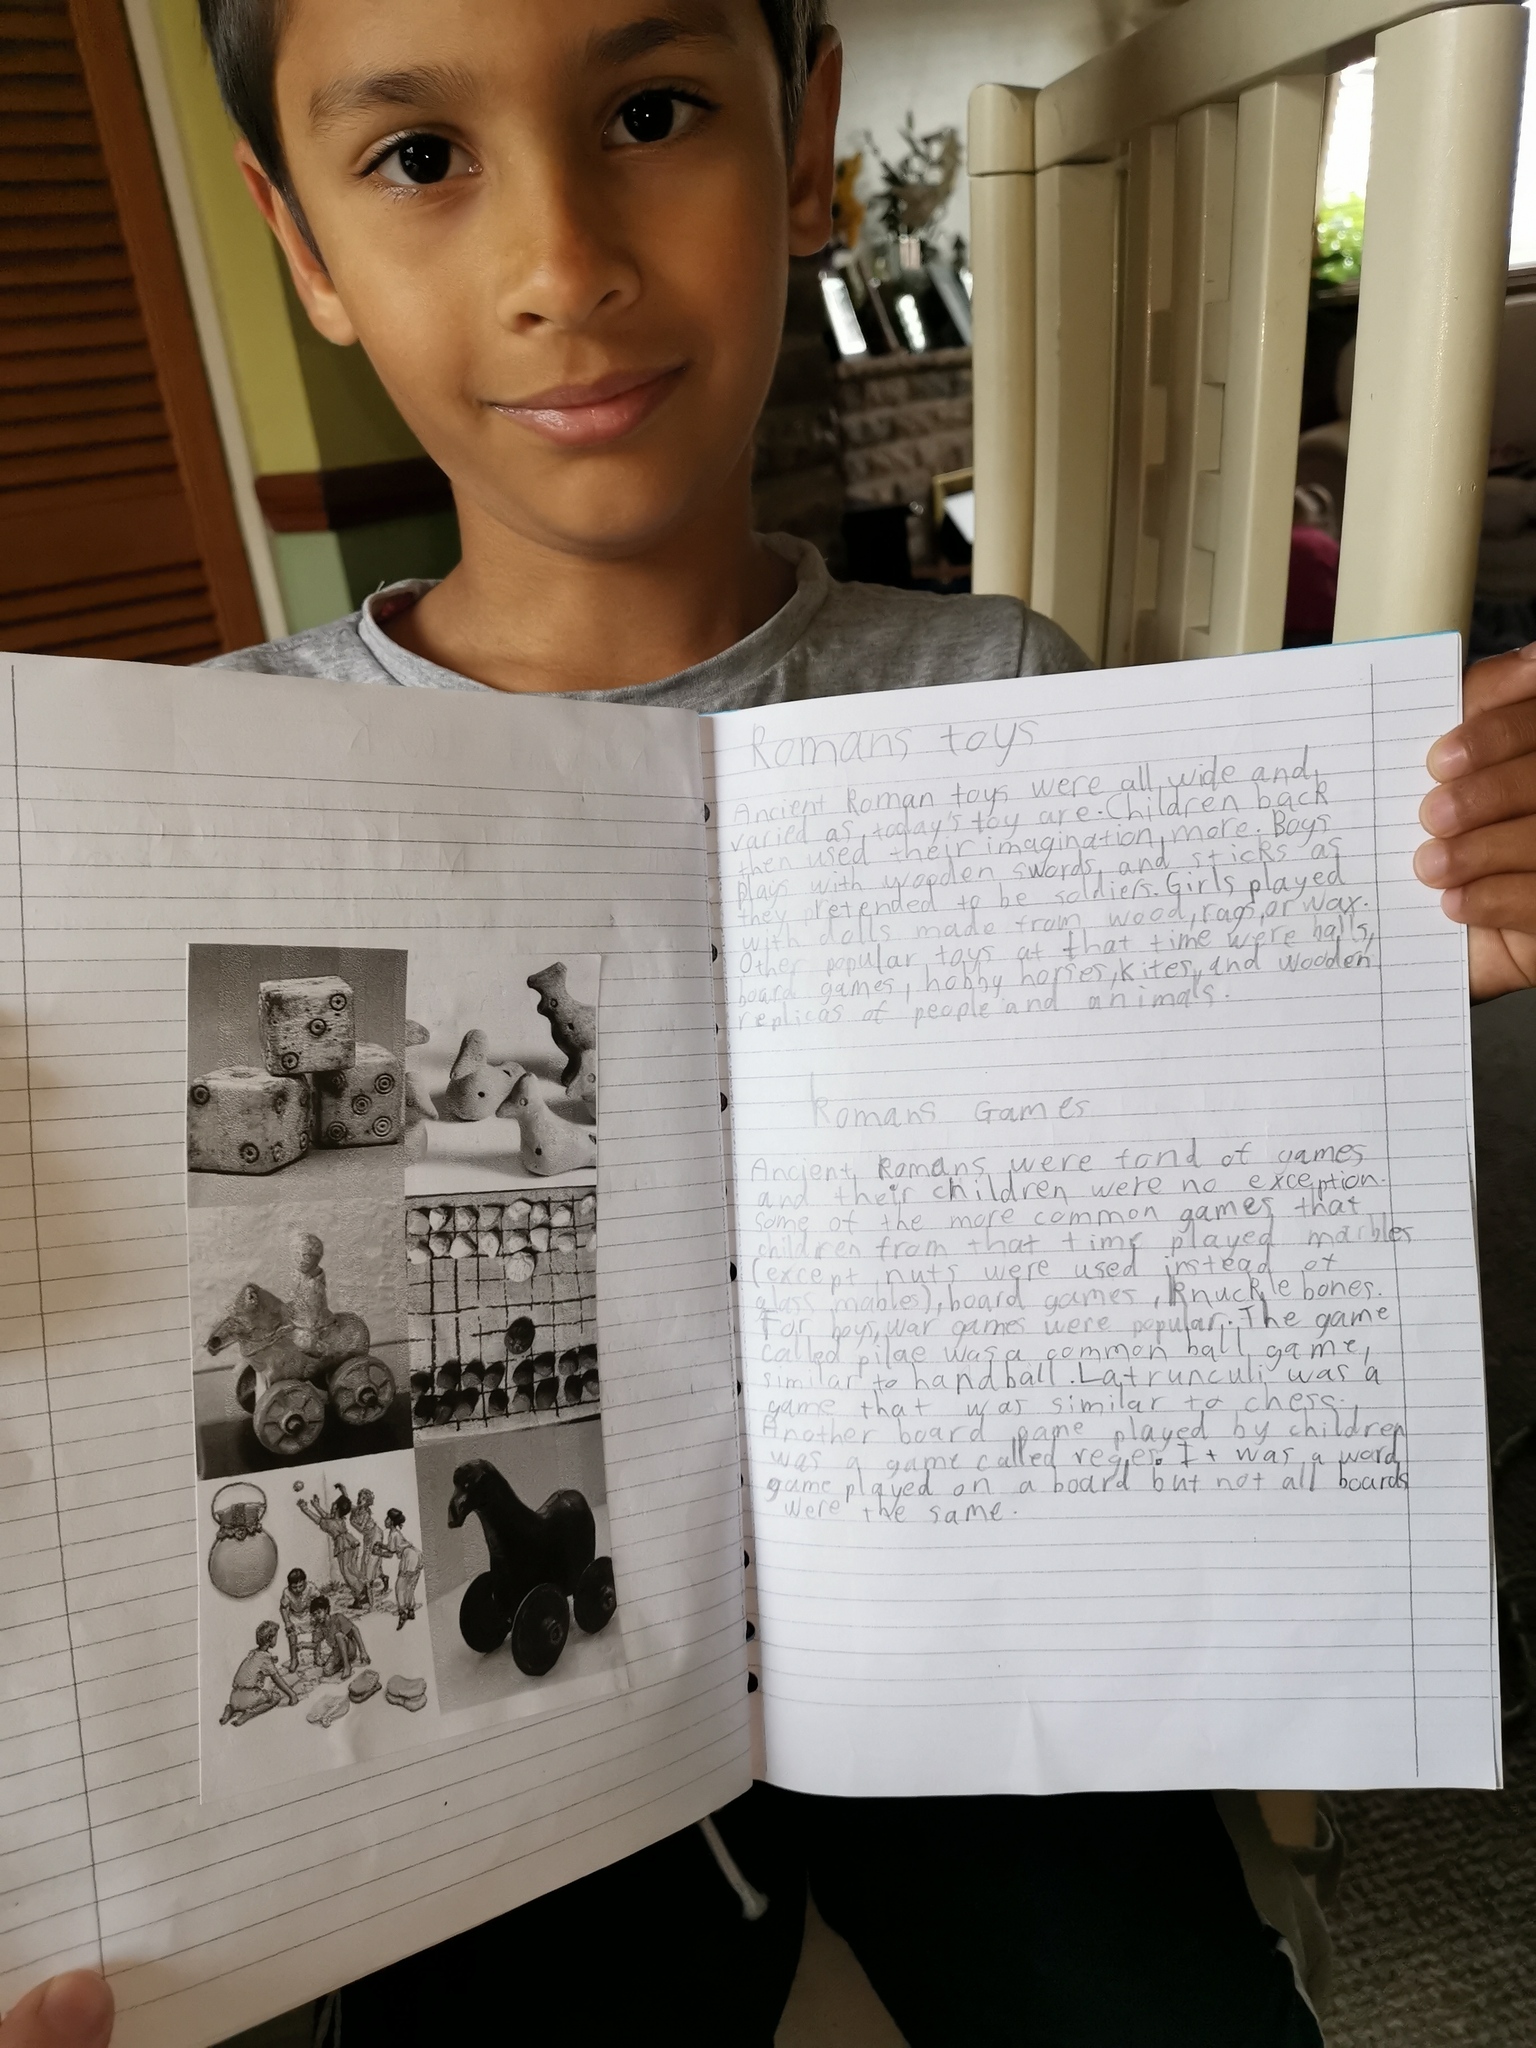 Romans toys
Ancient Roman toys were all wide and
varied as today's toy are. Children back
then used their imagination more. Boys
plays with wooden swords and sticks as
they pretended to be soldiers. Girls played
with dolls made from wood, rags, or wax.
Other popular toys at that time were balls,
board games, hobby horses, kites, and wooden
replicas of people and animals.
Romans Games
Ancient Romans were fond of games
and their children were no exception.
some of the more common games that
children from that time played marbles
(except nuts were used instead of
glass mables), board games, knuckle bones.
For boys, war games were popular. The game
called pilae was a common ball game,
similar to handball. Latrunculi was a
game that was similar to chess.
Another board game played by children
was a game called reges. It was a word
game played on a board but not all boards
were the same.